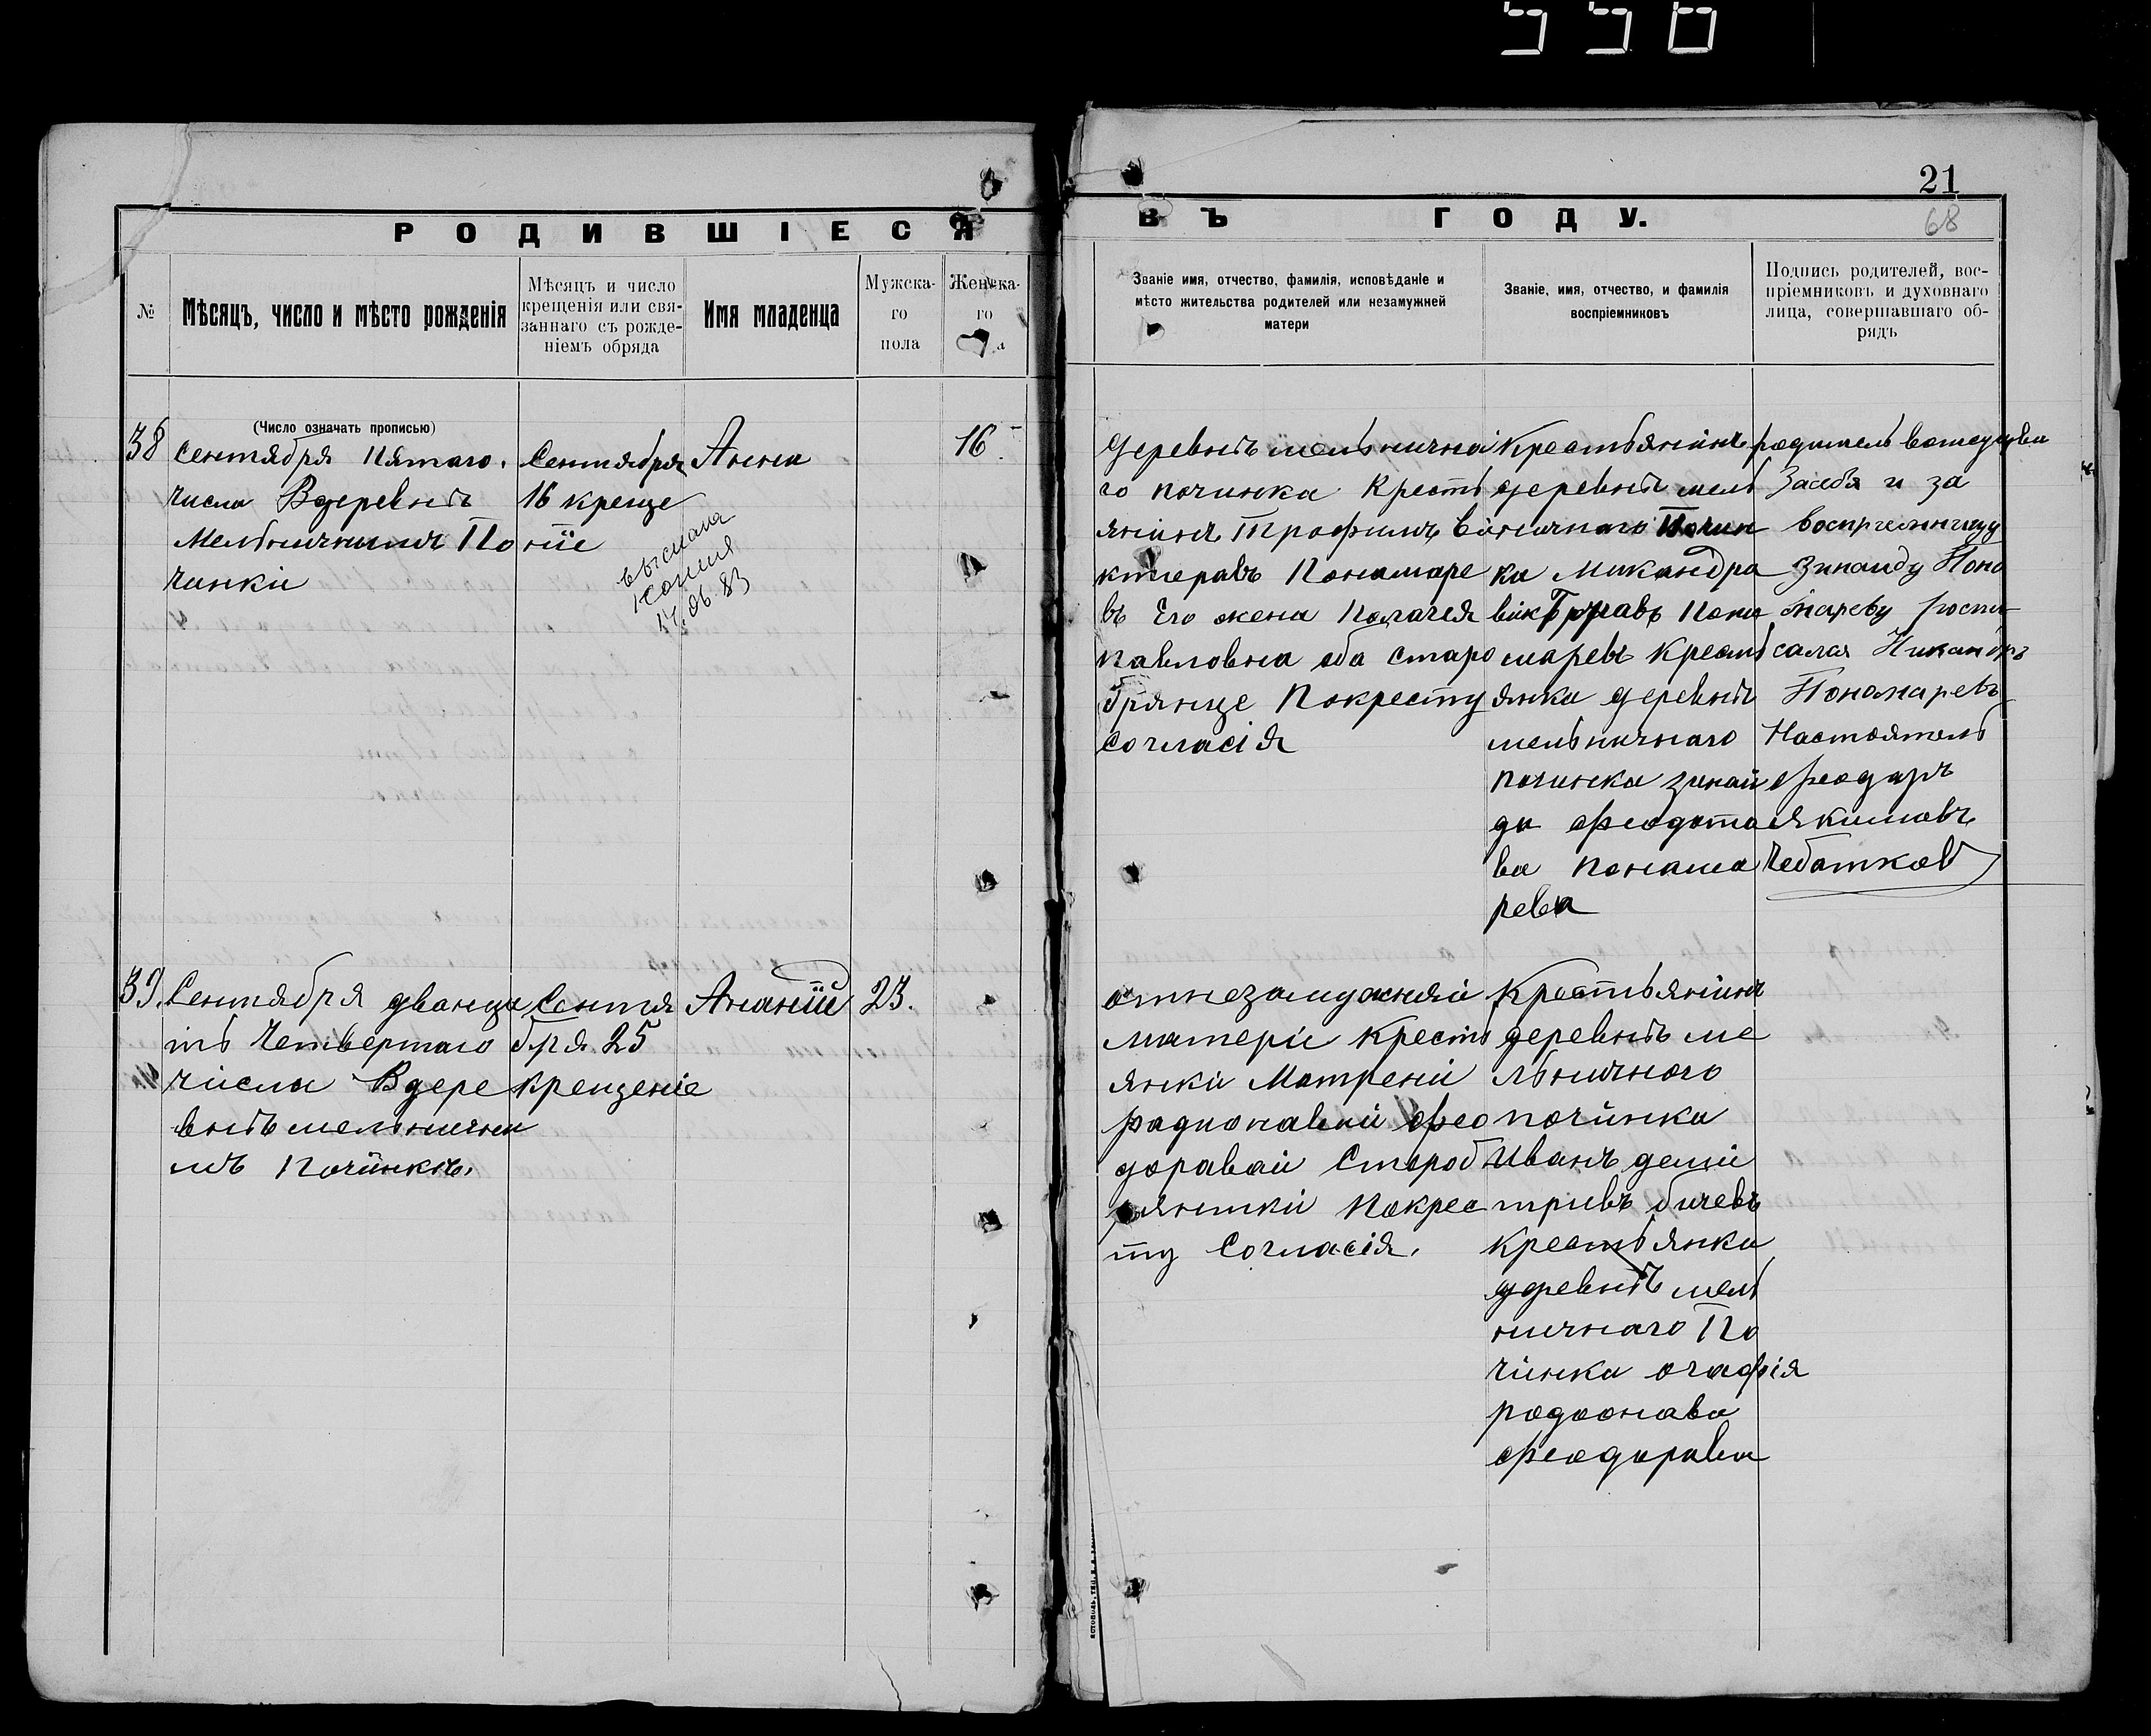 21
68
РОДИВШІЕСЯ ВЪ ГОДУ.
№
Мѣсяцъ, число и мѣсто рожденія
Мѣсяцъ и число
крещенія или свя-
заннаго съ рожде-
ніемъ обряда
Имя младенца
Мужска-
го
пола
Женска-
го
Званіе имя, отчество, фамилія, исповѣданіе и
мѣсто жительства родителей или незамужней
матери
Званіе, имя, отчество, и фамилія
воспріемниковъ
Подпись родителей, вос-
пріемниковъ и духовнаго
лица, совершавшаго об-
рядъ
(Число означать прописью)
38
Сентября Пятаго.
числа Вдеревнѣ
Мельничнымъ По
чинки
Сентября
16 креще
ніе
выслана
копия
Анна
16.
Деревнѣ мельнична
го починка Кресть
янинъ Трофимъ ви
ктеравъ Понамаре
въ Его жена Палагея
Павловна оба старо
брянце Покресту
согласія
Крестьянинъ
деревнѣ мель
ничнаго Почин
ка Микандра
викторавъ Пона
маревъ кресть
янка деревнѣ
мельничнаго
починка зинаи
да феодота
ва понама
рева
родитель
За себя и за
воспріемницу
Зинаиду Поно
мареву роспи
сался Никандръ
Пономаревъ
Настоятель
феодаръ
Якимавъ
Чебатков
39.
Сентября дванца
ть Четвертаго
числа Вдере
внѣ мельнична
мъ Починкѣ.
Сентя
бря 25
крещеніе
Ананій
23.
отнезамужняй
матери кресть
янки Матрени
радионавай фео
доравай Старооб
рянтки Покрес
ту Согласія.
Крестьянина
деревнѣ ме
льничного
починка
Иванъ деми
тривъ бичевъ
крестьянка
деревнѣ мель
ничнаго По
чинка огафія
родоонава
феодорава